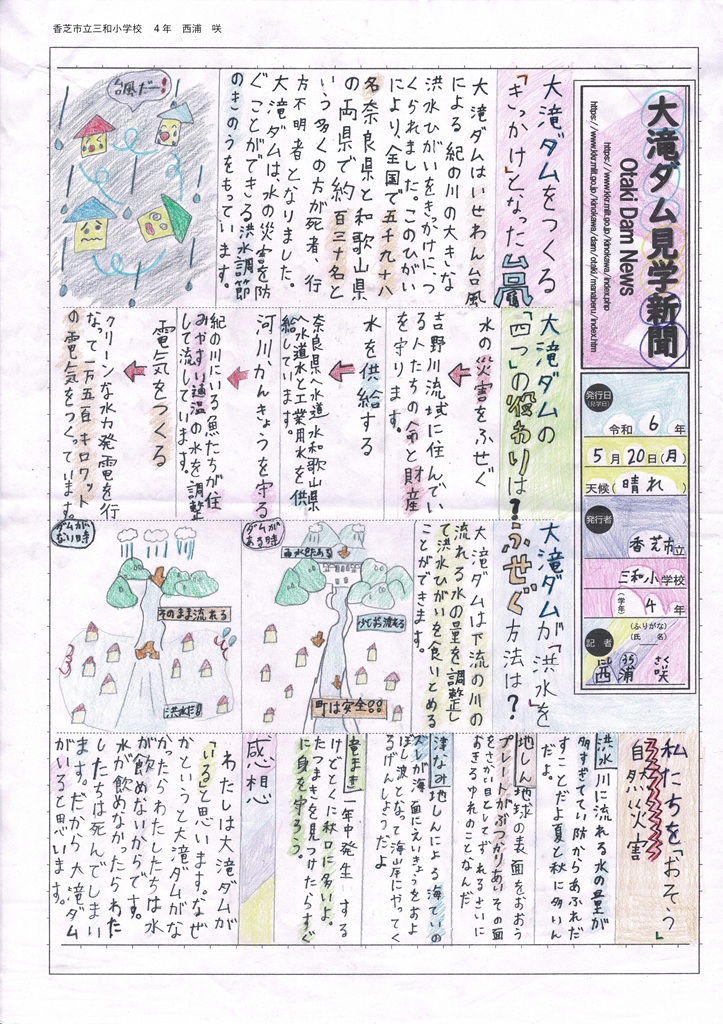 香芝市立三和小学校　4年　西浦　咲
大滝ダム見学新聞
Otaki Dam News
https://www.kkr.mlit.go.jp/kinokawa/index.php
https://www.kkr.mlit.go.jp/kinokawa/dam/otaki/manaberu/index.htm
発行日
(見学日)
令和 6 年
5月20日(月)
天候(晴れ)
発行者
香芝市立
三和小学校
(学年) 4 年
記者
(ふりがな)
(氏名)
にし うら さく
西浦 咲
大滝ダムをつくる
「きっかけ」となった台風
大滝ダムはいせわん台風
による紀の川の大きな
洪水ひがいをきっかけにつ
くられました。このひがい
により、全国で五千九十八
名奈良県と和歌山県
の両県で約百三十名と
いう多くの方が死者、行
方不明者となりました。
大滝ダムは、水の災害を防
ぐことができる洪水調節
のきのうをもっています。
台風だー!
大滝ダムの
「四つ」の役わりは?
水の災害をふせぐ
吉野川流域に住んでい
る人たちの命と財産
を守ります。
水を供給する
奈良県へ水道水和歌山県
へ水道水と工業用水を供
給しています。
河川かんきょうを守る
紀の川にいる魚たちが住
みやすい適温の水を調整
して流しています。
電気をつくる
クリーンな水力発電を行
なって一万五百キロワット
の電気をつくっています。
大滝ダムが「洪水」を
ふせぐ方法は?
大滝ダムは下流の川の
流れる水の量を調整し
て洪水ひがいを食いとめる
ことができます。
ダムがある時
雨水をためる
少しずつ流れる
町は安全◎◎
ダムがない時
そのまま流れる
洪水だ!!
私たちを「おそう」
自然災害
洪水 川に流れる水の量が
多すぎててい防からあふれだ
すことだよ夏と秋に多いん
だよ。
地しん 地球の表面をおおう
プレートがぶつかりあいその面
をさかい目としてずれるさいに
おきるゆれのことなんだ
津なみ 地しんによる海ていの
ズレが海面にえいきょうをおよ
ぼし波となって海岸にやってく
るげんしょうだよ
竜まき 一年中発生する
けどとくに秋口に多いよ。
たつまきを見つけたらすぐ
に身を守ろう。
感想
わたしは大滝ダムが
「いる」と思います。なぜ
かというと大滝ダムがな
かったらわたしたちは水
が飲めないからです。
水が飲めなかったらわた
したちは死んでしまい
ます。だから大滝ダム
がいると思います。